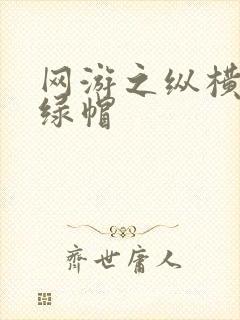 网游之纵横
绿帽
齐世庸人